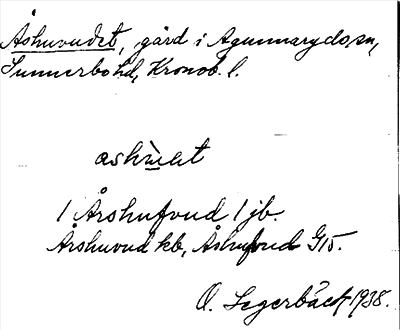 Åshuvudet, gård i Agunnaryds sn,
Sunnerbo hd, Kronob. l.
ashùet
1 Årshufvud 1 jb.
Årshuvud kb, Åshufvud G15.
O. Segerbäck 1938.